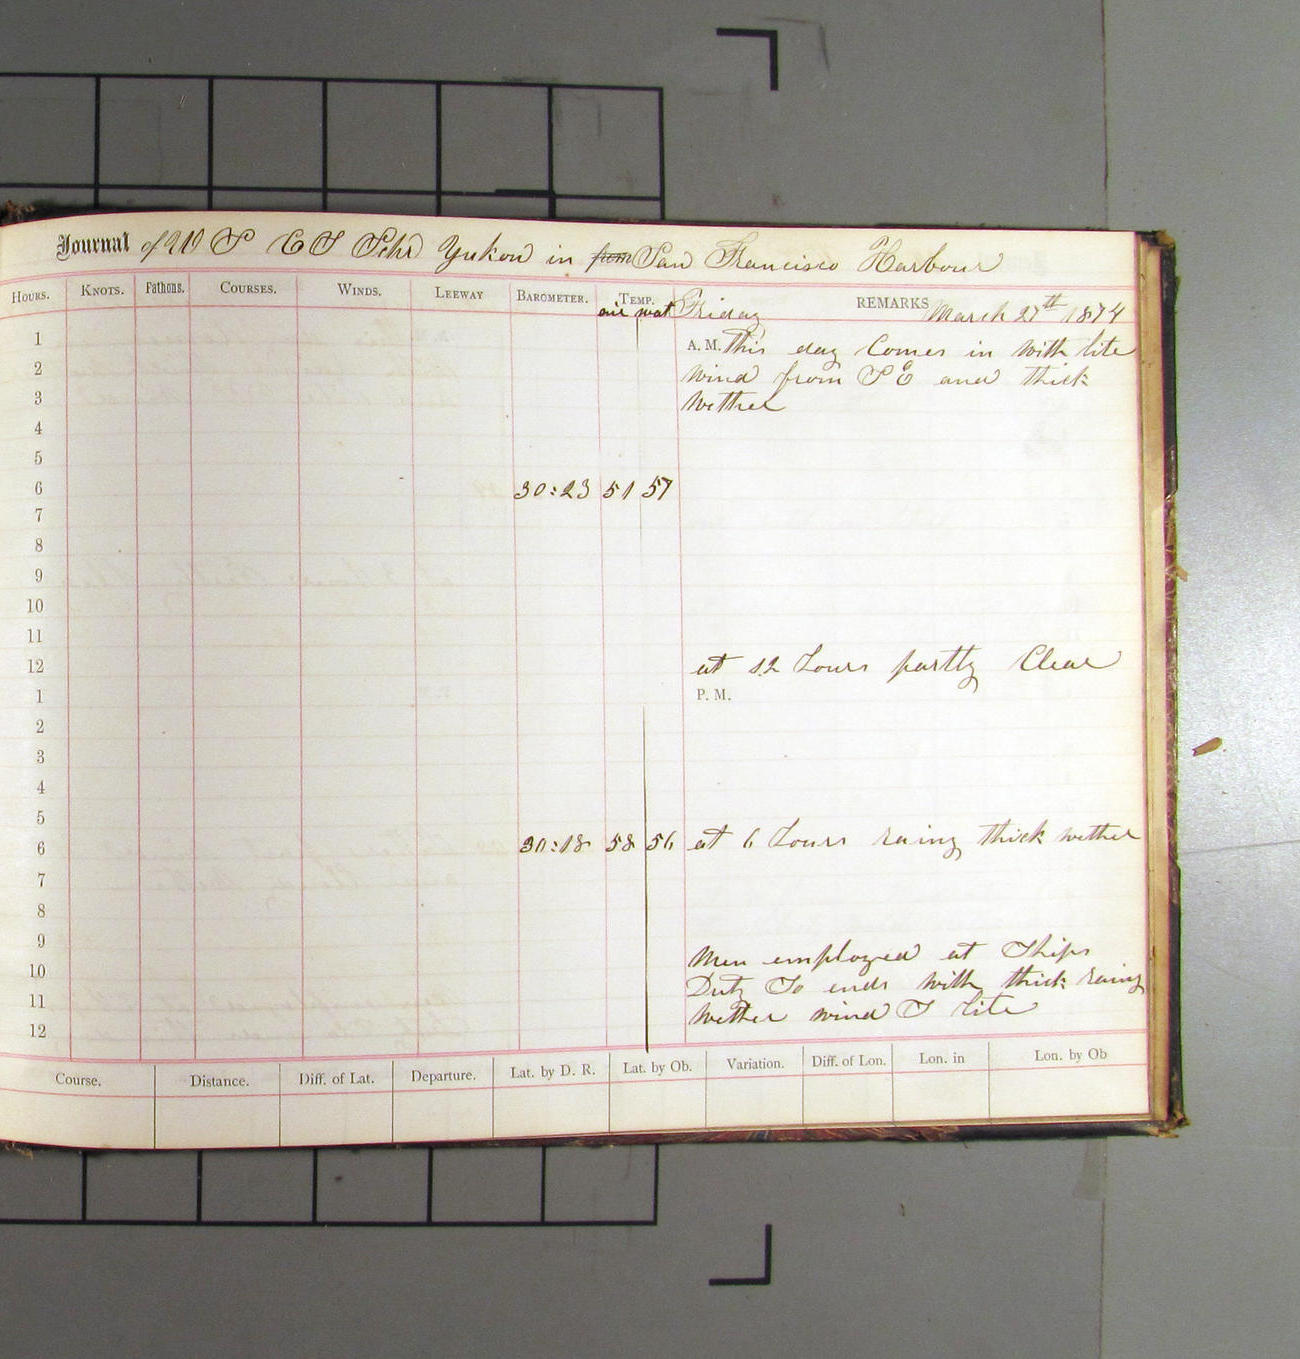 Journal of U S C S Schr Yukon in from San Francisco Harbour
HOURS. KNOTS. Fathoms. COURSES. WINDS. LEEWAY BAROMETER. TEMP. REMARKS
air wat Friday March 27th 1874
1 A. M. This day Comes in with lite
2 wind from S E and thick
3 wether
4
5
6 30:23 51 57
7
8
9
10
11
12 at 12 hours partly Clear
1 P. M.
2
3
4
5
6 30:18 58 56 at 6 hours rainy thick wether
7
8
9 Men employed at Ships
10 Duty So ends with thick rainy
11 wether wind S lite
12
Course. Distance. Diff. of Lat. Departure. Lat. by D. R. Lat. by Ob. Variation. Diff. of Lon. Lon. in Lon. by Ob